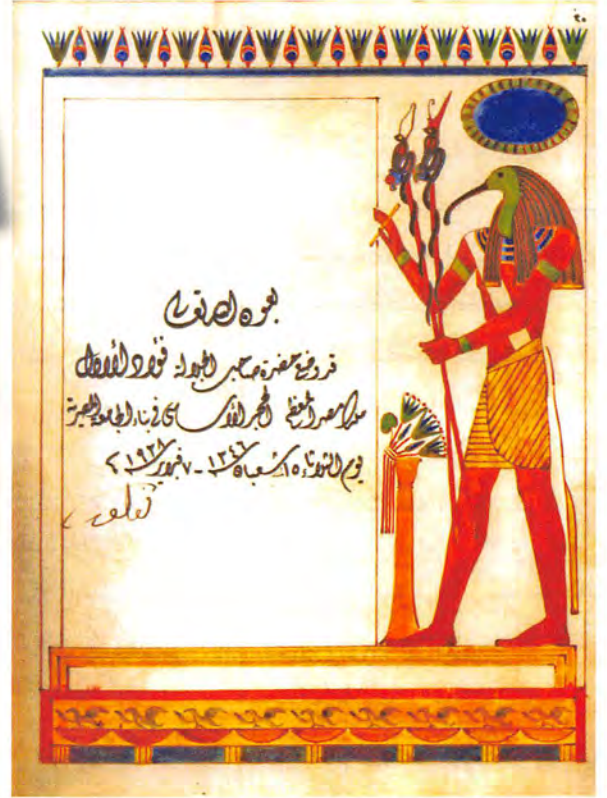 ٢٠
بعون الله تعالى
قد وضع حضرة صاحب الجلالة فؤاد الأول
ملك مصر المعظم الحجر الأساسى فى بناء الجامعة المصرية
يوم الثلاثاء ١٥ شعبان ١٣٤٦ – ٧ فبراير ١٩٢٨ م